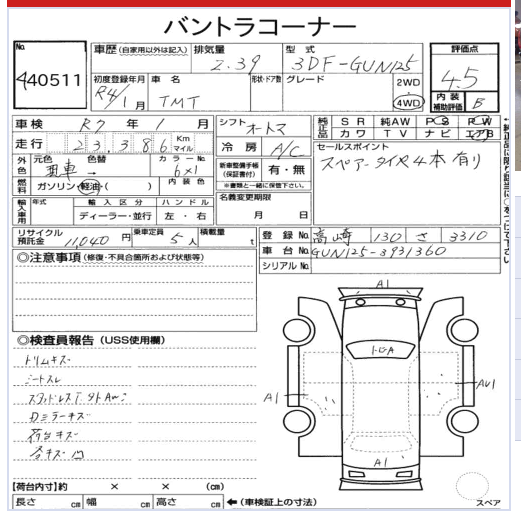 バントラコーナー
No. 440511
車歴 (自家用以外は記入) 排気量 2.39 型式 3DF-GUN125 評価点 4.5
初度登録年月 R4/1月 車名 TMT 形状・ドア数 グレード 2WD 4WD 内装補助評価 B
車検 R7年1月 シフト オートマ 純正品 SR 純AW PS PW
カワ TV ナビ エアB
走行 23,386 Km マイル 冷房 A/C セールスポイント
スペアータイヤ4本有り
外色 元色 色替 カラーNo. 6×1 新車整備手帳(保証書付) 有・無
※書類と一緒に保管下さい。
燃料 ガソリン・軽油・( ) 内装色 名義変更期限
月 日
輸入車用 年式 輸入区分 ハンドル
ディーラー・並行 左・右
リサイクル預託金 11,040円 乗車定員 5人 積載量 t 登録No. 高崎 130 さ 3310
車台No. GUN125-3931360
シリアルNo.
◎注意事項 (修復・不具合箇所および状態等)
◎検査員報告 (USS使用欄)
トリムキズ
シートスレ
Dミラーキズ
荷台キズ
各キズ凹
A1
A1
AU1
A1
【荷台内寸】約 × × (cm)
長さ cm 幅 cm 高さ cm ← (車検証上の寸法)
スペア